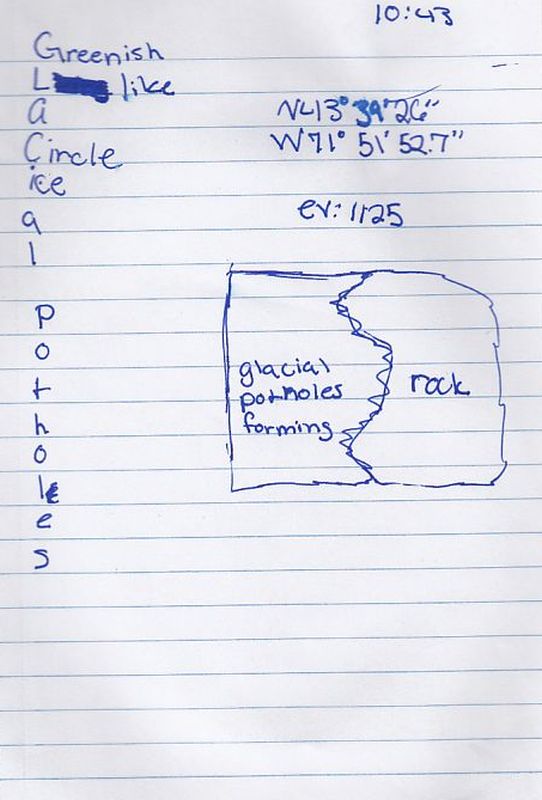 10:43
Greenish
L like
a
Circle
ice
a
l
P
o
t
h
o
l
e
s
N43° 39' 26"
W71° 51' 52.7"
ev: 1125
glacial
potholes
forming
rock